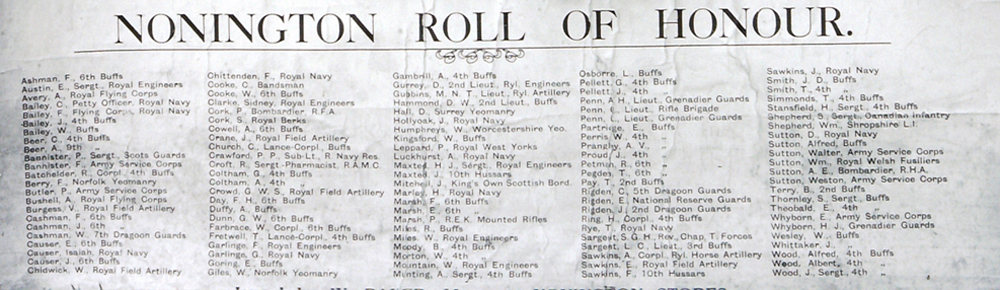 NONINGTON ROLL OF HONOUR.
Ashman, F., 6th Buffs
Austin, E., Sergt., Royal Engineers
Avery, A., Royal Flying Corps
Bailey, C., Petty Officer, Royal Navy
Bailey, F., Flying Corps, Royal Navy
Bailey, J., 4th Buffs
Bailey, W., Buffs
Beer, C., 4th Buffs
Beer, A., 9th „
Bannister, P., Sergt., Scots Guards
Bannister, F., Army Service Corps
Batchelder, R., Corpl., 4th Buffs
Berry, F., Norfolk Yeomanry
Butler, P., Army Service Corps
Bushell, A., Royal Flying Corps
Burgess, V., Royal Field Artillery
Cashman, F., 6th Buffs
Cashman, J., 6th „
Cashman, W., 7th Dragoon Guards
Causer, E., 6th Buffs
Causer, Isaiah, Royal Navy
Causer, J., 6th Buffs
Chidwick, W., Royal Field Artillery
Chittenden, F., Royal Navy
Cooke, C., Bandsman
Cooke, W., 6th Buffs
Clarke, Sidney, Royal Engineers
Cork, P., Bombardier, R.F.A.
Cork, S., Royal Berks
Cowell, A., 6th Buffs
Crane, J., Royal Field Artillery
Church, C., Lance-Corpl., Buffs
Crawford, P. P., Sub-Lt., R. Navy Res.
Croft, R., Sergt.-Pharmacist, R.A.M.C.
Coltham, G., 4th Buffs
Coltham, A., 4th
Crowd, G. W. S., Royal Field Artillery
Day, F. H., 6th Buffs
Duffy, A., Buffs
Dunn, G. W., 6th Buffs
Farbrace, W., Corpl., 6th Buffs
Fretwell, T., Lance-Corpl., 4th Buffs
Garlinge, F., Royal Engineers
Garlinge, G., Royal Navy
Goring, E., Buffs
Giles, W., Norfolk Yeomanry
Gambrill, A., 4th Buffs
Gurrey, D., 2nd Lieut., Ryl. Engineers
Gubbins, M. N. T., Lieut., Ryl. Artillery
Hammond, D. W., 2nd Lieut., Buffs
Hall, D., Surrey Yeomanry
Hollyoak, J., Royal Navy
Humphreys, W., Worcestershire Yeo.
Kingsford, W., Buffs
Leppard, P., Royal West Yorks
Luckhurst, A., Royal Navy
Maxted, H. J., Sergt., Royal Engineers
Maxted, J., 10th Hussars
Mitchell, J., King's Own Scottish Bord.
Marley, H., Royal Navy
Marsh, F., 6th Buffs
Marsh, E., 6th
Marsh, P., R.E.K. Mounted Rifles
Miles, R., Buffs
Miles, W., Royal Engineers
Moody, B., 4th Buffs
Morton, W., 4th „
Mountain, W., Royal Engineers
Munting, A., Sergt., 4th Buffs
Osborne, L., Buffs
Pellett, G., 4th Buffs
Pellett, J., 4th „
Penn, A. H., Lieut., Grenadier Guards
Penn, E., Lieut., Rifle Brigade
Penn, L., Lieut., Grenadier Guards
Partridge, E., Buffs
Perris, W., 4th „
Prangly, A. V., „
Proud, J., 4th „
Petman, R., 6th „
Pegden, T., 6th „
Pay, T., 2nd Buffs
Rigden, C., 5th Dragoon Guards
Rigden, E., National Reserve Guards
Rigden, J., 2nd Dragoon Guards
Ring, H., Corpl., 4th Buffs
Rye, T., Royal Navy
Sargest, S. G. H., Rev., Chap. T. Forces
Sargest, L. C., Lieut., 3rd Buffs
Sawkins, A., Corpl., Ryl. Horse Artillery
Sawkins, E., Royal Field Artillery
Sawkins, F., 10th Hussars
Sawkins, J., Royal Navy
Smith, J. D., Buffs
Smith, T., 4th „
Simmonds, T., 4th Buffs
Stansfield, H., Sergt., 4th Buffs
Shepherd, S., Sergt., Canadian Infantry
Shepherd, Wm., Shropshire L.I.
Sutton, J., Royal Navy
Sutton, Alfred, Buffs
Sutton, Walter, Army Service Corps
Sutton, Wm., Royal Welsh Fusiliers
Sutton, A. E., Bombardier, R.H.A.
Sutton, Weston, Army Service Corps
Terry, B., 2nd Buffs
Thornley, S., Sergt., Buffs
Theobald, E., 4th „
Whyborn, E., Army Service Corps
Whyborn, H. J., Grenadier Guards
Wesley, W., Buffs
Whittaker, J., „
Wood, Alfred, 4th Buffs
Wood, Albert, 4th „
Wood, J., Sergt., 4th „